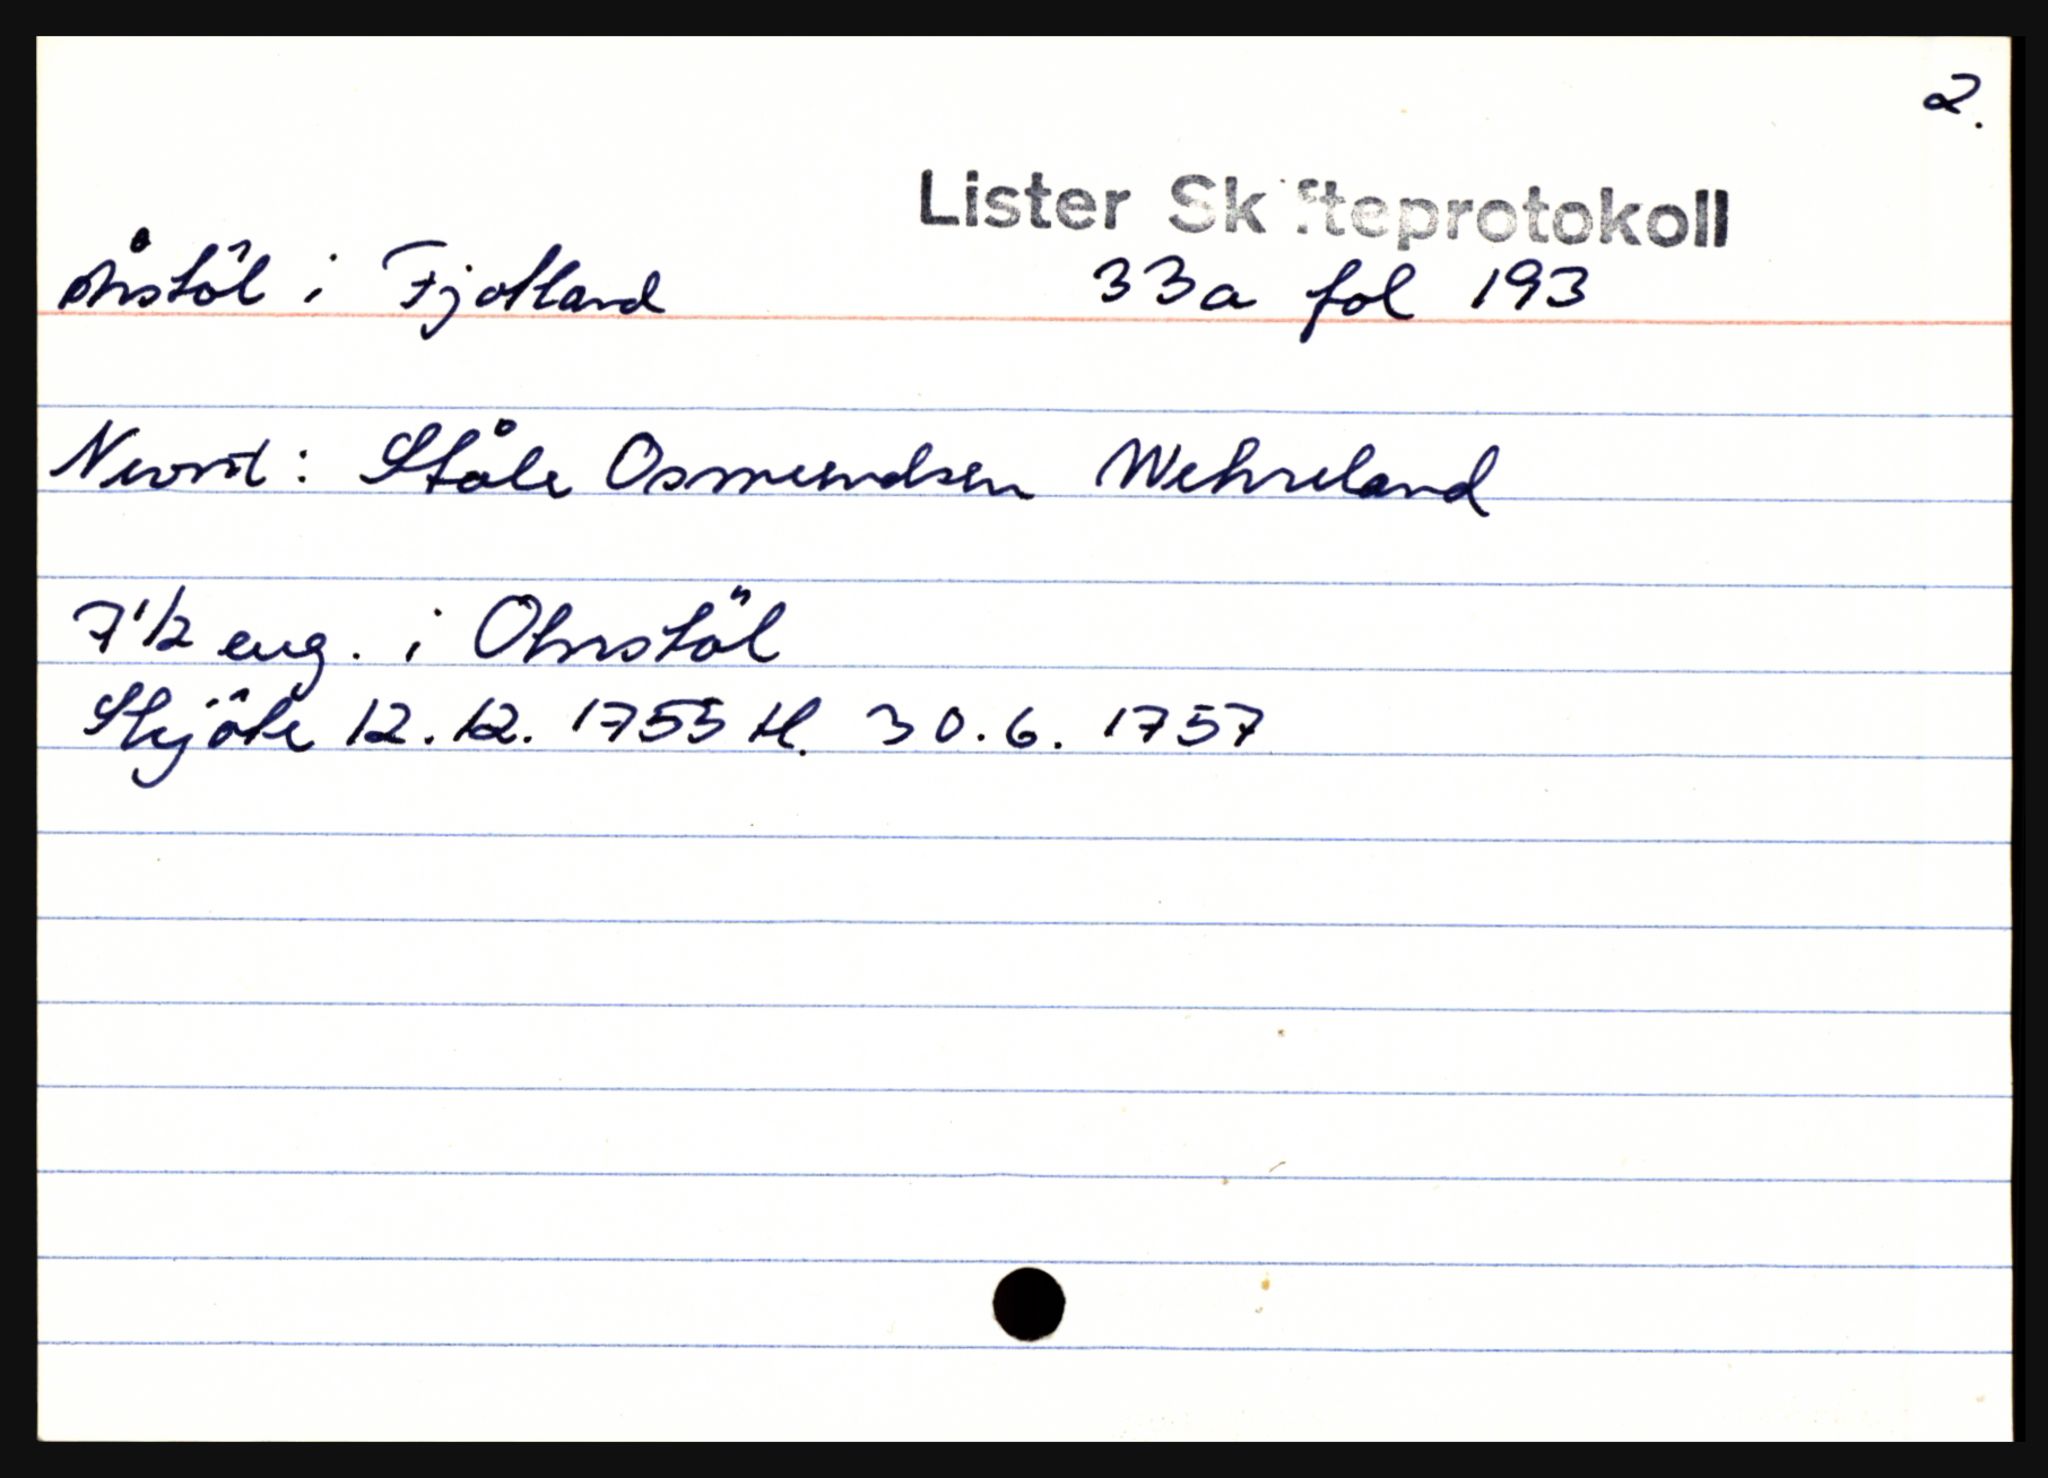 2.
Lister Skifteprotokoll
Åhrstöl i Fjotland 33a fol 193
Ståle Osmundsen Wehreland
7 1/2 eng. i Ohrstöl
Skjöte 12.12. 1755 tl. 30.6. 1757